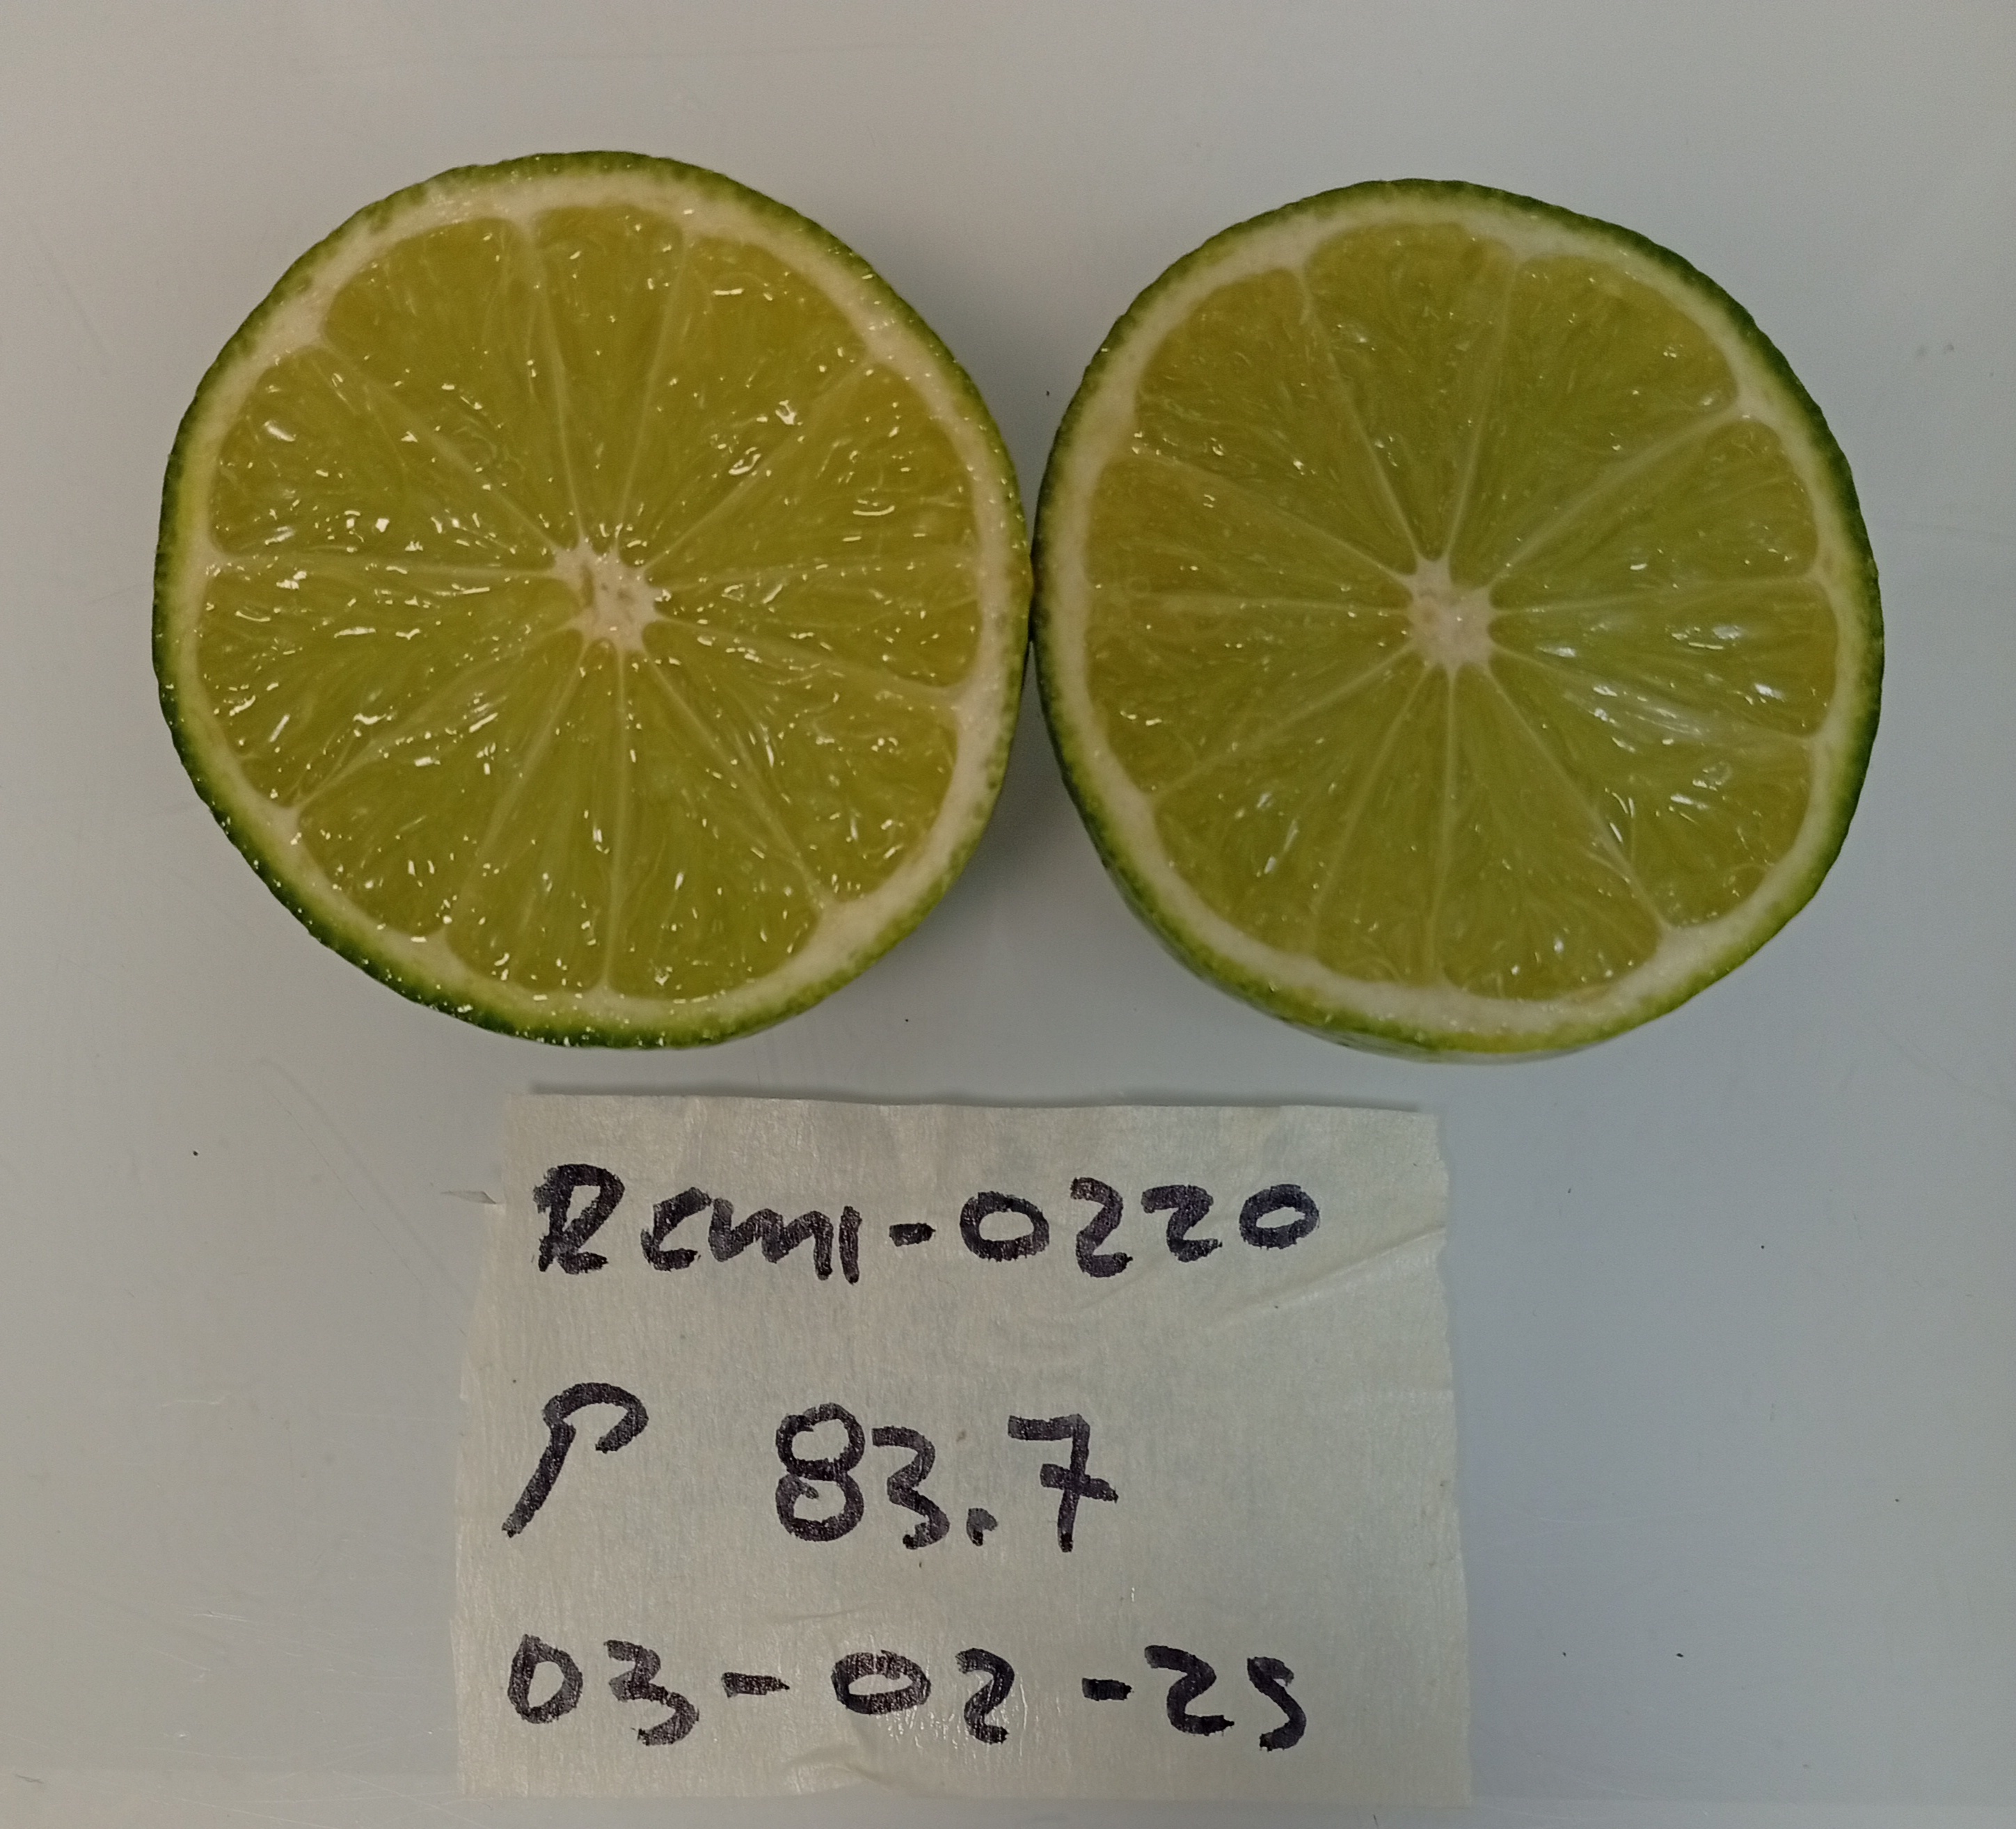 Remi-0220
P 83.7
03-02-25